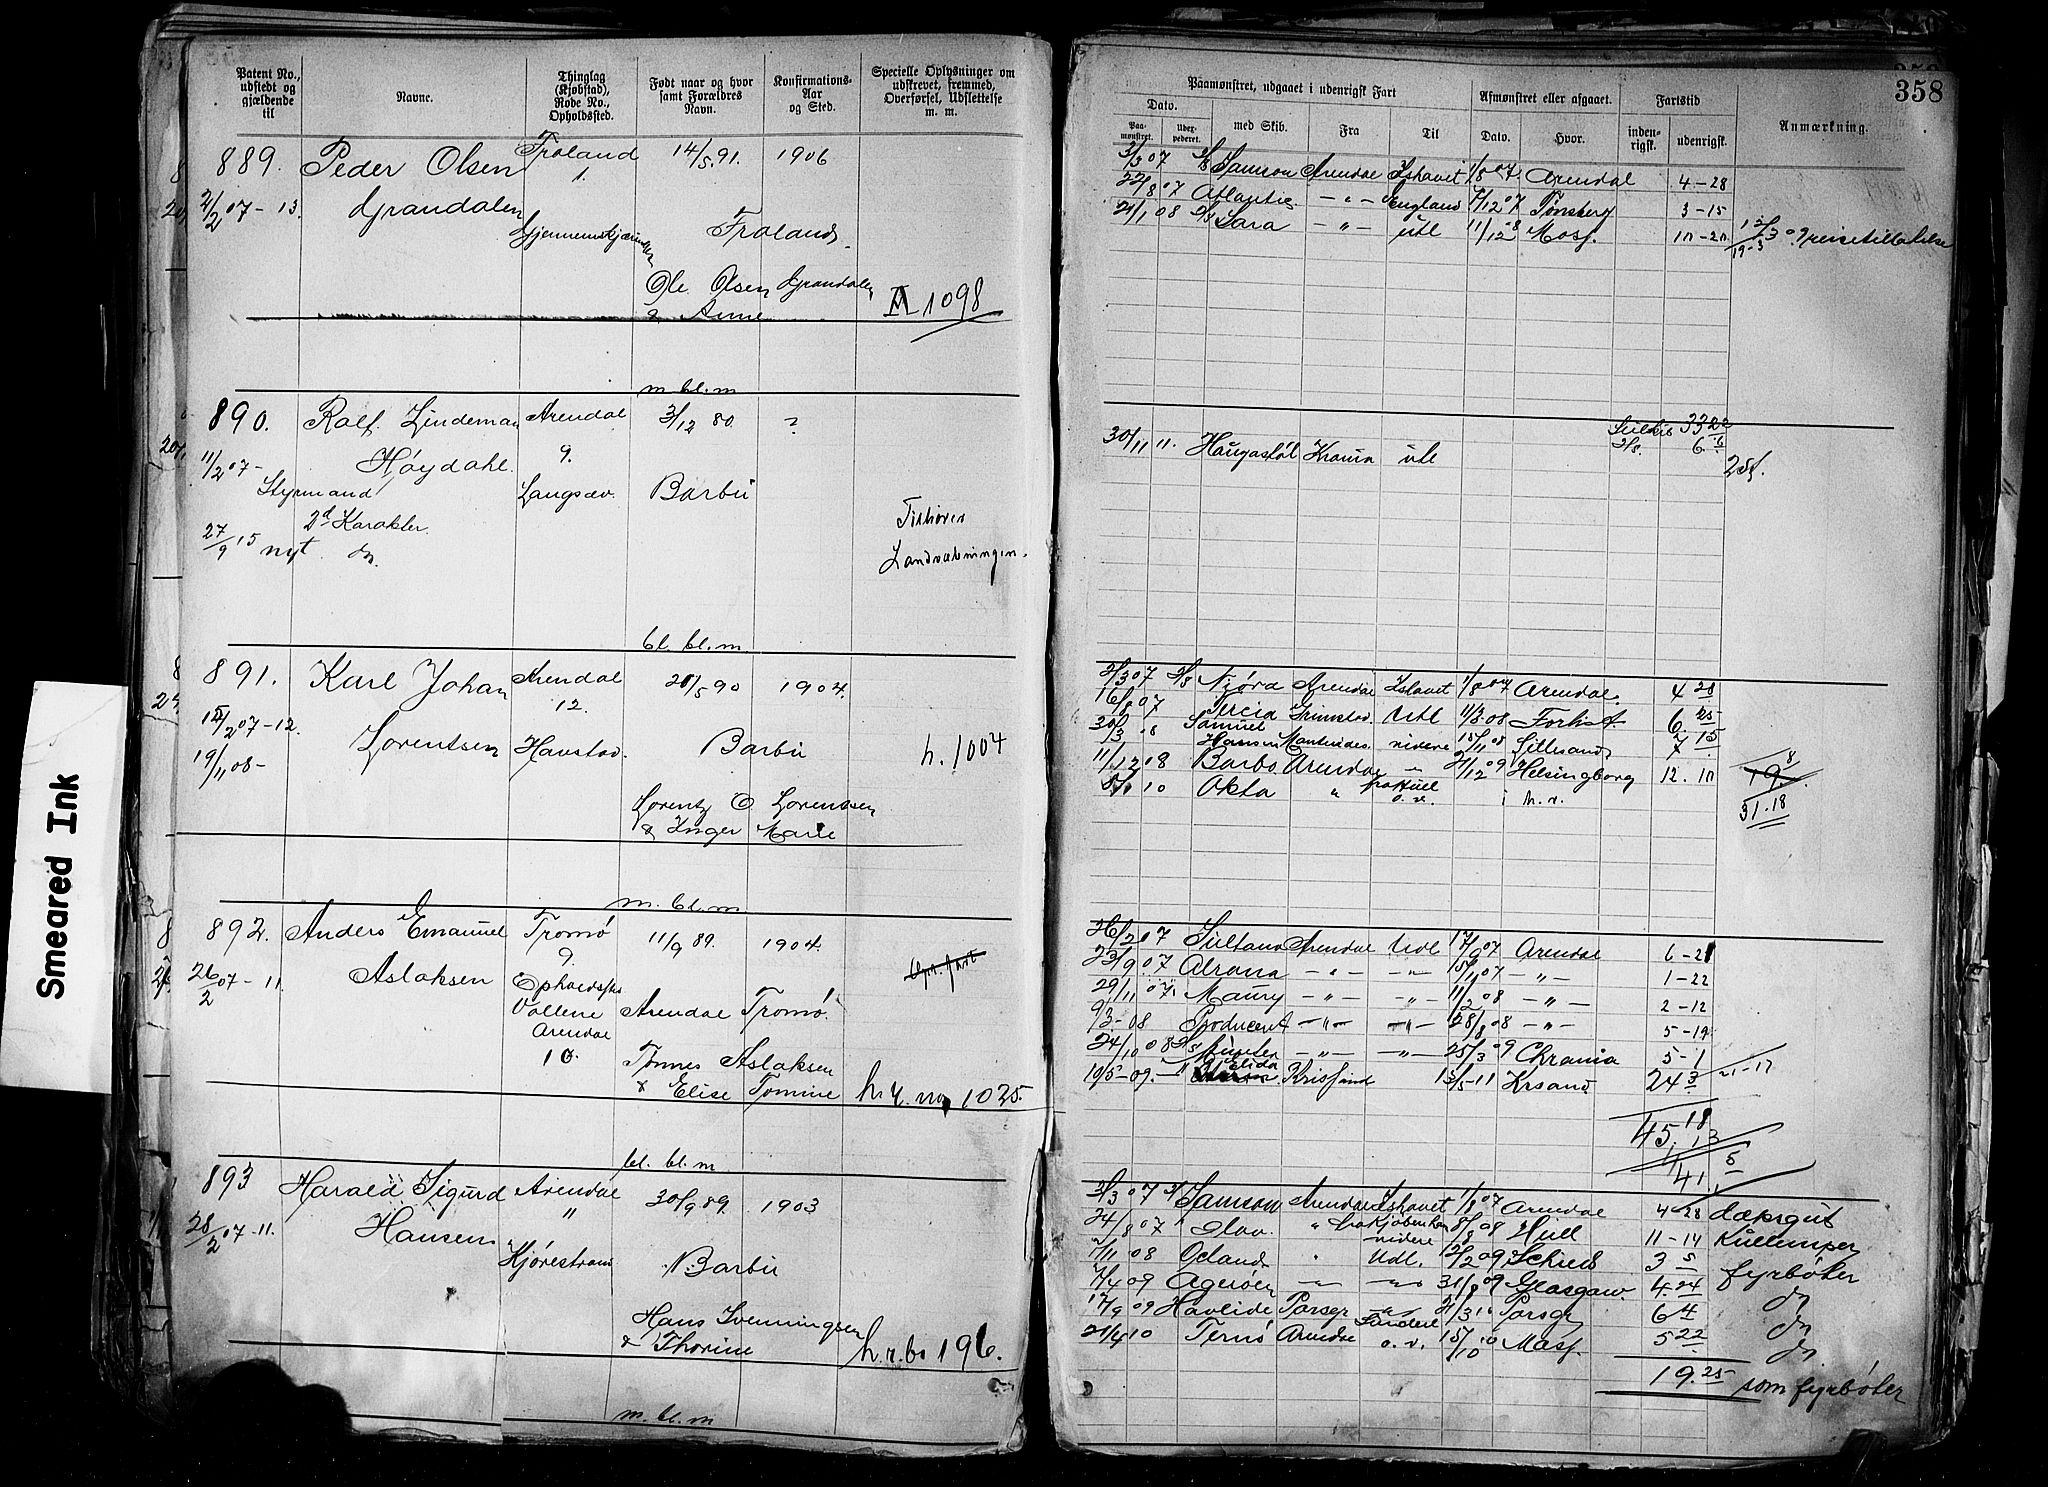 358
Patent No., udstedt og gjældende til
Navne.
Thinglag (Kjøbstad), Rode No., Opholdssted.
Født naar og hvor samt Forældres Navn.
Konfirmations-Aar og Sted.
Specielle Oplysninger om udskrevet, fremmed, Overførsel, Udslettelse m. m.
Paamønstret, udgaaet i udenrigsk Fart
Afmønstret eller afgaaet.
Fartstid
Anmærkning.
Dato.
Paa-mønstret.
med Skib.
Fra
Til
Dato.
Hvor.
inden-rigsk.
udenrigsk.
889. Peder Olsen Froland 14/5 91. 1906
1.
2/2 07-13. Grandalen
Froland.
Ole Olsen Grandalen
& Anne
1098
m. bl. m
3/3 07 Samson Arendal Ishavet 1/8 07. Arendal 4-28
22/8 07 Atlantic -"- England 12 07 Tønsberg 3-15
21/1 08 Sara -"- utl 11/12 08 Mosj.
890. Rolf Lindeman Arendal 3/12 80. ?
11/2 07- Høydahl. 9.
Styrmand Langsæv. Barbu
27/9 15 nyt 2d Karakter
do.
Tilhører
Landværningen.
bl. bl. m
30/11 11. Haugastøl Krania utl
891. Karl Johan Arendal 5 90 1904.
12.
2 07-12. Lorentsen Havstad. Barbu h. 1004
19/11 08-
Lorentz O. Lorentsen
& Inger Marie
m. bl. m
3 07 Njørd Arendal Ishavet 1/8 07 Arendal. 4 28
16/8 07 Grimstad. Utl 11/3 08 6 25
30/3 08 Samuel
Hansen Montevideo. videre 11 08 Lillesand 7 15
11/12 08 Barbo Arendal 12 09 Helsingborg 12.
10 Okta " o. v. i h. v.
19.8
31.18
892. Anders Emanuel Tromø 11/9 89. 1904.
9.
26/2 07-11. Aslaksen Opholdsst.
Vollene Arendal Tromø.
Arendal
10.
Tønnes Aslaksen
& Elise Tomine h. r. no 1025.
bl. bl. m
26/2 07 Sultana Arendal Utl 17/9 07 Arendal 6-21
23/9 07 Alrona -"- -"- 11 07 -"- 1-22
29/11 07. Maury -"- -"- 11/2 08 -"- 2-12
9/3-08 Producent -"- -"- 28/8 08 -"- 5-19
24/10 08 Munter -"- -"- 25/3 09 Chrania 5-1
10/5-09. Elida Kristsand 5-11 Krsand 24 3
45.18
13
41.5
893 Harald Sigurd Arendal 30/9 89. 1903
"
28/2 07-11. Hansen
Kjørestrand Barbu
Hans Svenningsen
& Thorine h. r. bo 196.
m. bl. m
3 07 Samson Arendal Ishavet 1/8 07 Arendal 4 28 dæksgut
24/8 07 Olav " fra Kjøbenhavn videre 8 08 Hull 11-14 Kullemper
11 08 Oeland " Utl. 2 09 Schields 3 5 fyrbøter
7/4 09 Agerøen -"- -"- 31/8 09 Glasgow. 4.24 do
17/9 09 Havlide Porsgr -"- 3 10 Porsgr 6 4 do
21/4 10 Ternø Arendal o. v. 10 10 Mosj. 5 22 do
19.25 som fyrbøter
Smeared Ink